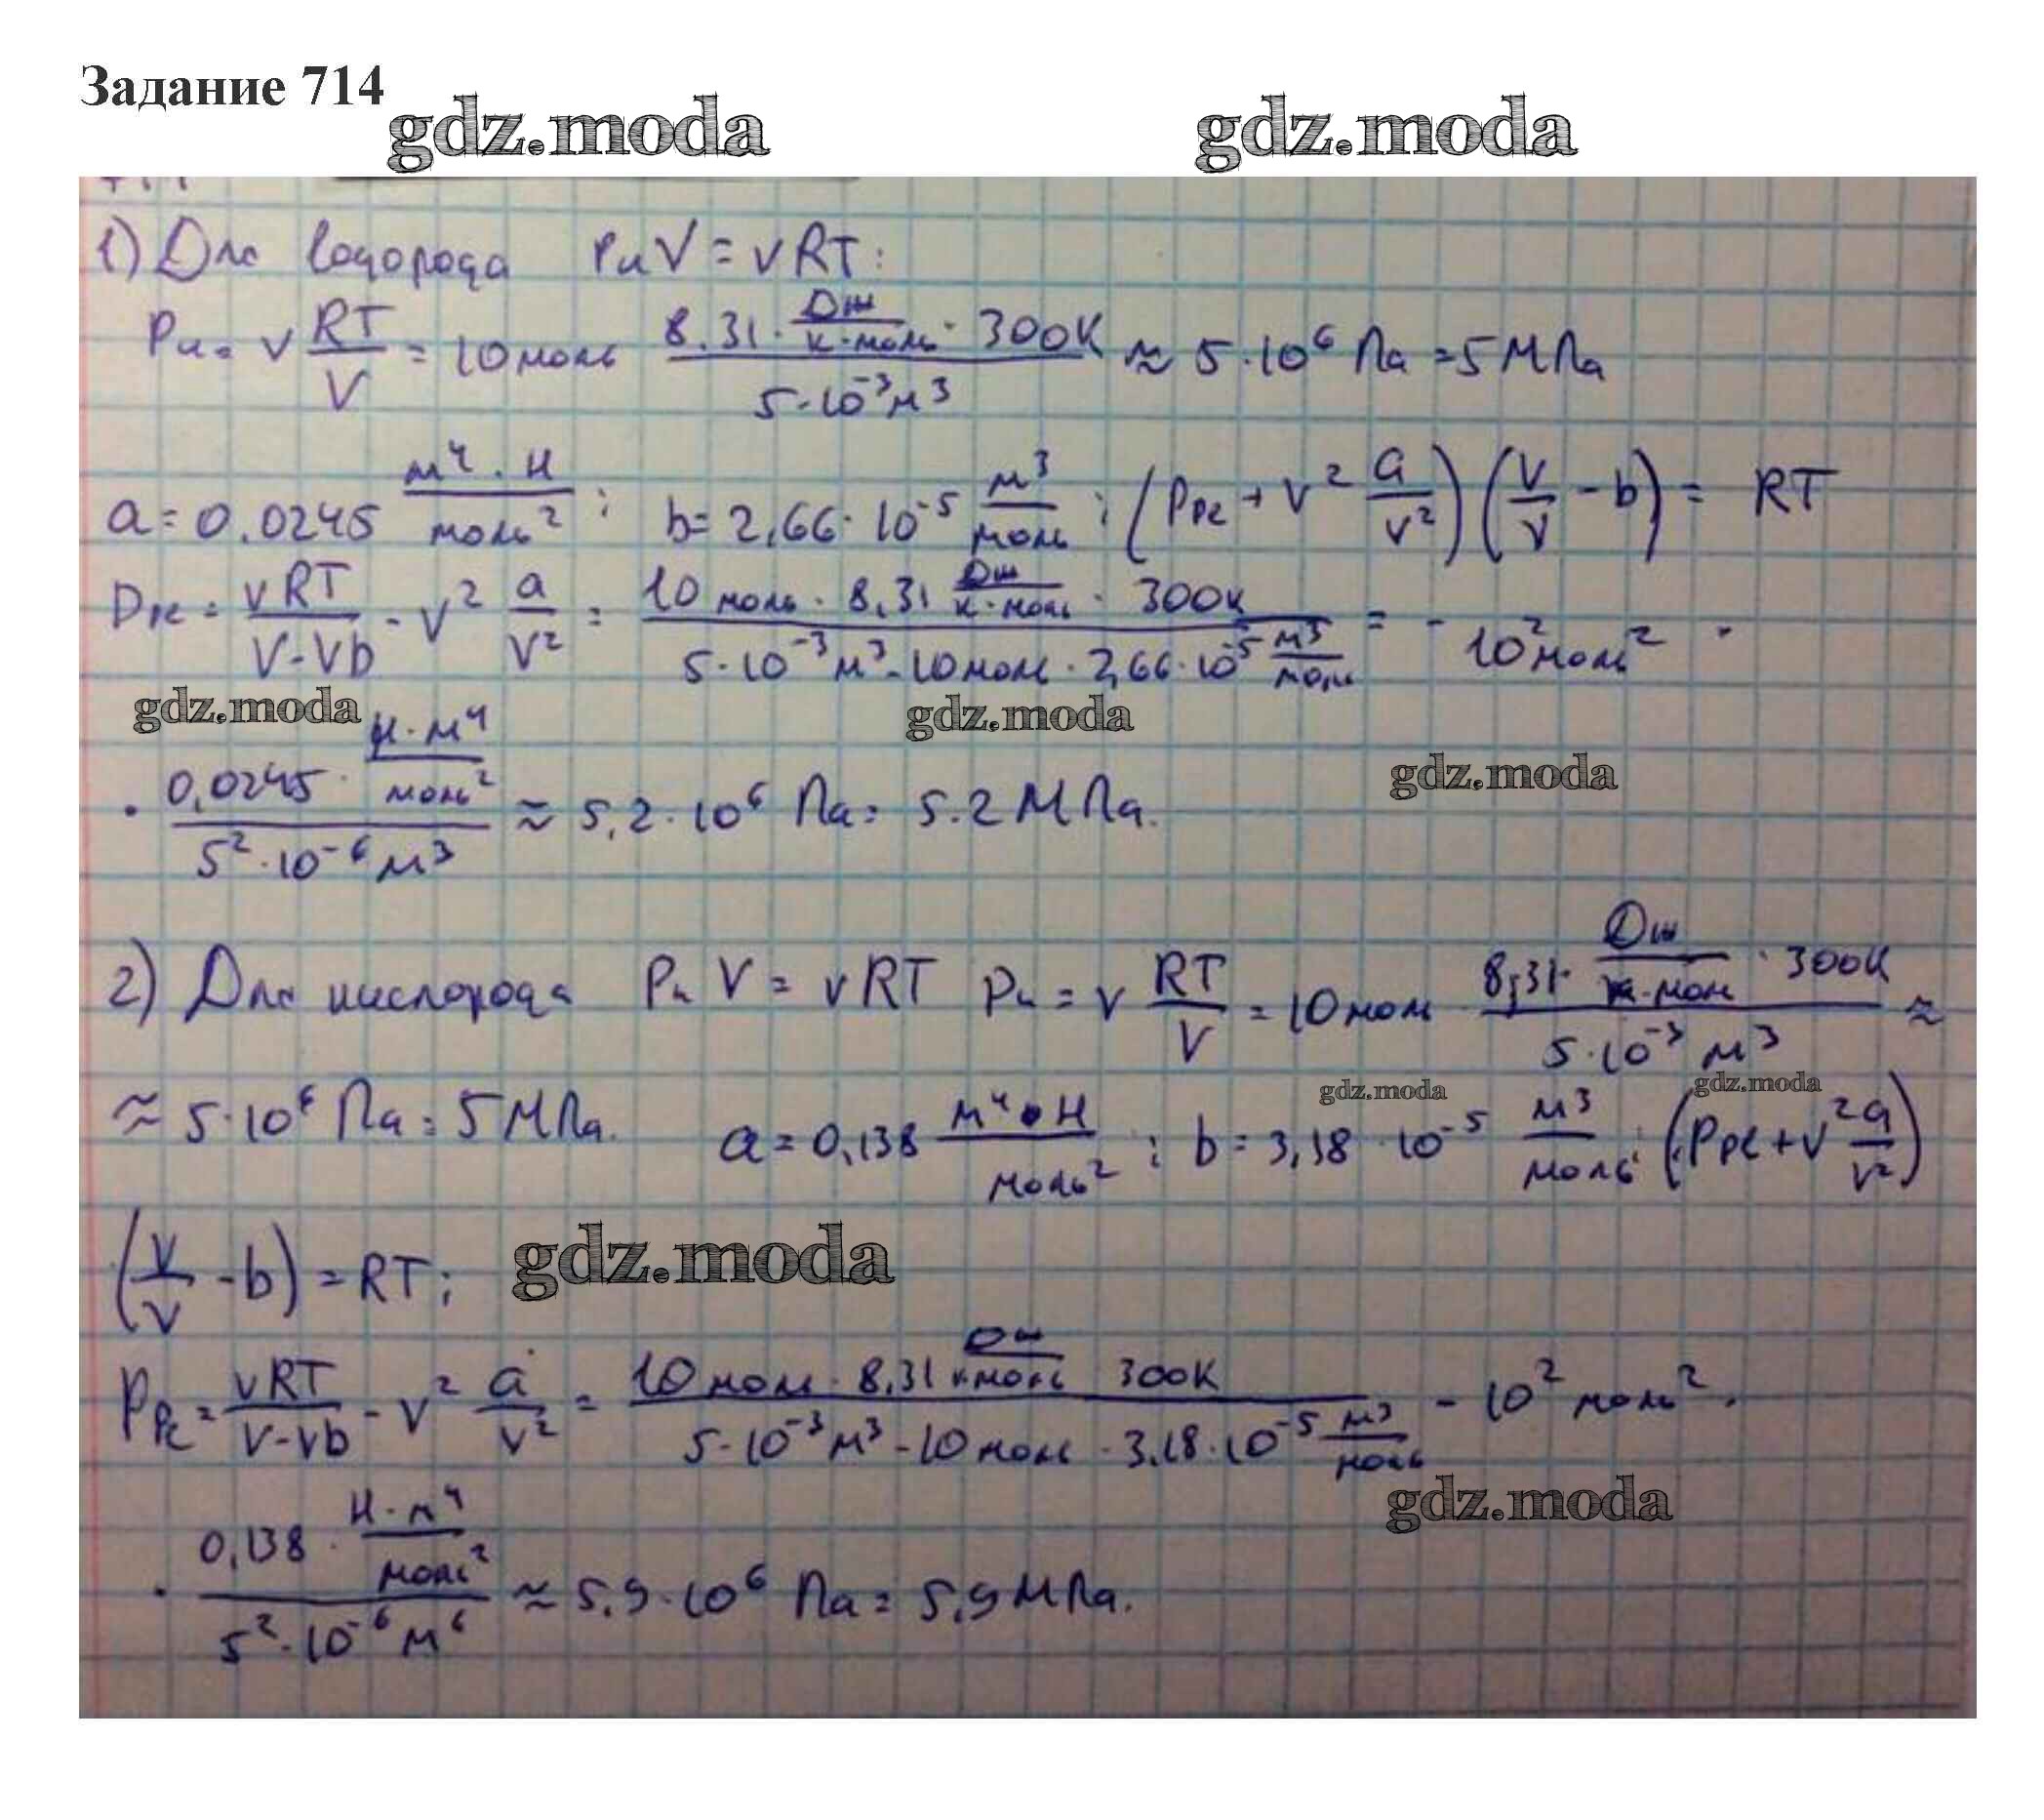 Задание 714
gdz.moda gdz.moda
1) Для водорода PиV = νRT:
Pи = ν RT/V = 10 моль 8.31 · Дж/К·моль · 300К / 5·10⁻³м³ ≈ 5·10⁶ Па = 5 МПа
a = 0.0245 м⁴·Н/моль² ; b = 2,66·10⁻⁵ м³/моль ; (Pре + ν² a/V²)(V/ν - b) = RT
Pре = νRT/V-νb - ν² a/V² = 10 моль · 8,31 Дж/К·моль · 300К / 5·10⁻³м³ - 10 моль · 2,66·10⁻⁵ м³/моль = - 10² моль² ·
gdz.moda gdz.moda
gdz.moda
· 0,0245 · Н·м⁴/моль² / 5²·10⁻⁶ м³ ≈ 5,2·10⁶ Па = 5.2 МПа.
2) Для кислорода Pи V = νRT Pи = ν RT/V = 10 моль 8,31· Дж/К·моль · 300К / 5·10⁻³ м³ ≈
gdz.moda gdz.moda
≈ 5·10⁶ Па = 5 МПа. a = 0,138 м⁴·Н/моль² ; b = 3,18 · 10⁻⁵ м³/моль ; (Pре + ν² a/V²)
(V/ν - b) = RT ;
gdz.moda
Pре = νRT/V-νb - ν² a/V² = 10 моль · 8,31 Дж/К·моль 300К / 5·10⁻³м³ - 10 моль · 3,18·10⁻⁵ м³/моль - 10² моль² ·
gdz.moda
· 0,138 · Н·м⁴/моль² / 5²·10⁻⁶ м⁶ ≈ 5,9·10⁶ Па = 5,9 МПа.